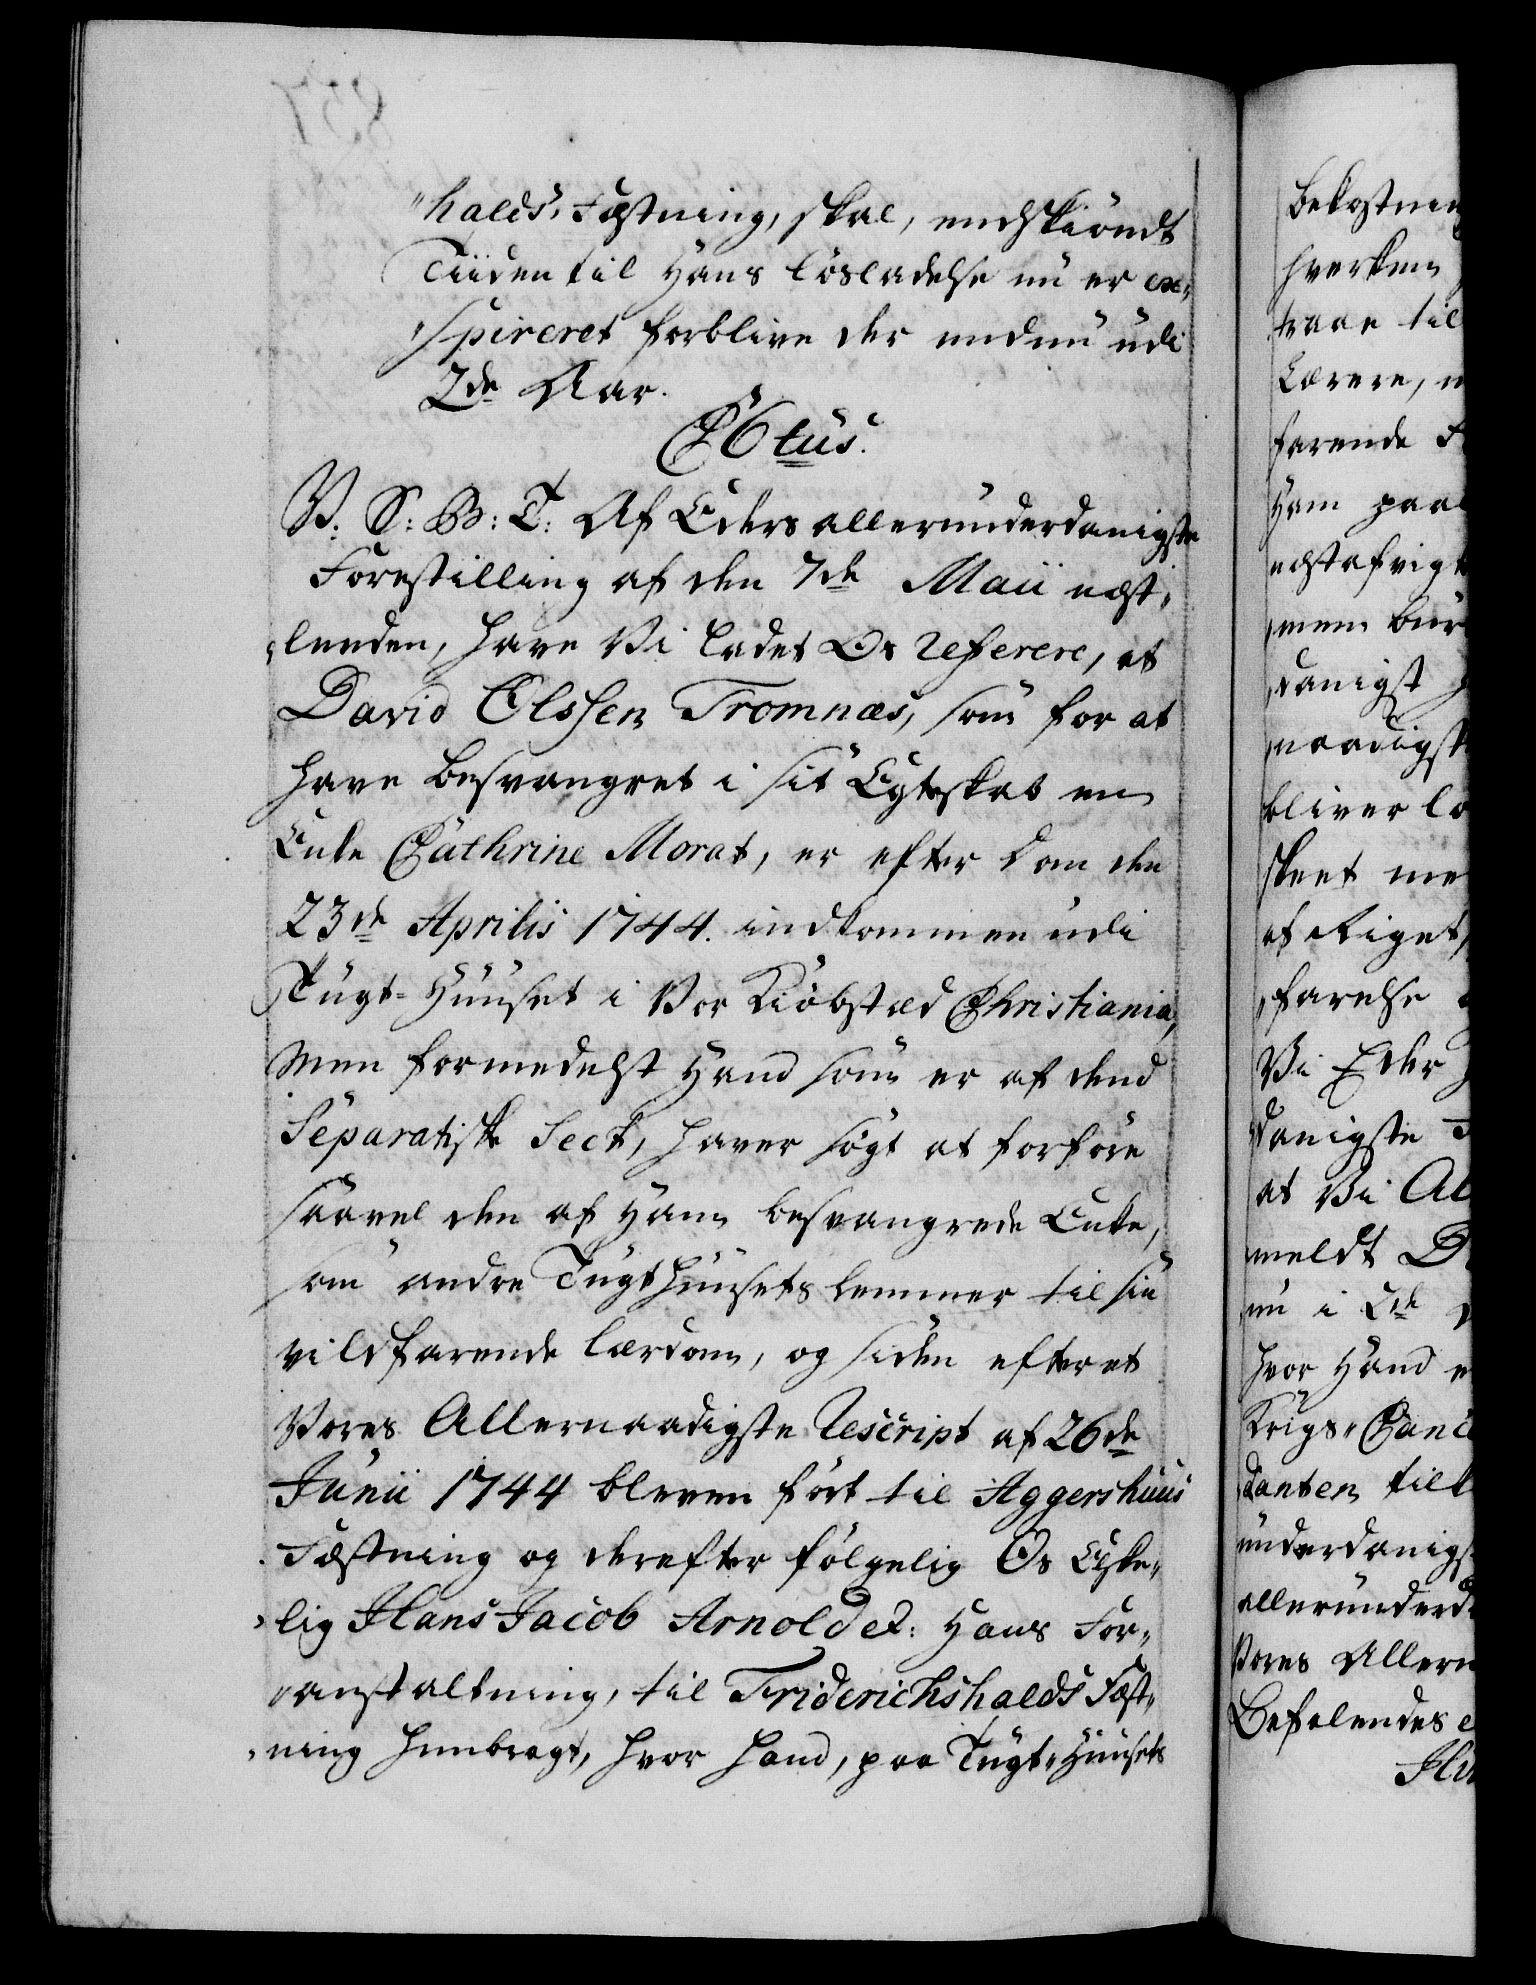 "halds, Fæstning, skal, endskiöndt
Tiiden til Hans Løsladelse nu er ex,,
,,spireret forblive der endnu udi
2de Aar.
C6tus.
V. S: B: T: Af Eders allerunderdanigste
Forestilling af den 7de Maii næst,,
,,leeden, have Vi ladet Os referere, at
David Olssen Tromnæs, som for at
have besvangret i sit Egteskab en
Enke Cathrine Morat, er efter Dom den
23de Aprilis 1744. indkommen udi
Tugt-Huuset i Vor Kiöbstæd Christiania,
men formedelst Hand som er af dend
Separatiske Sect, haver søgt at forföre
saavel den af Ham besvangrede Enke,
som andre Tugthuusets Lemmer til sin
vildfarende Lærdom, og siden efter et
Vores Allernaadigste Rescript af 26de
Junii 1744 bleven ført til Aggershuus
Fæstning og derefter følgelig Os Elske,,
,,lig Hans Jacob Arnold et: Hans For,,
,,anstaltning, til Friderichshalds Fæst,,
,,ning henbragt, hvor hand, paa Tugt-Huusets
Bekostnin
hverken
traae til
Lærere, n
farende F
Ham paa
næstafvigt
,,mem bur
,,danigst
,,naadigst
bliver lo
skeet me
af Riget,
,,farelse
Vi Eder
,,danigste
at Vi Al
,,meldt D
nu i 2de
hvor Hand e
Krigs-Canc
danten til
underdanigs
allerunderd
Vores Allern
Befalendes e